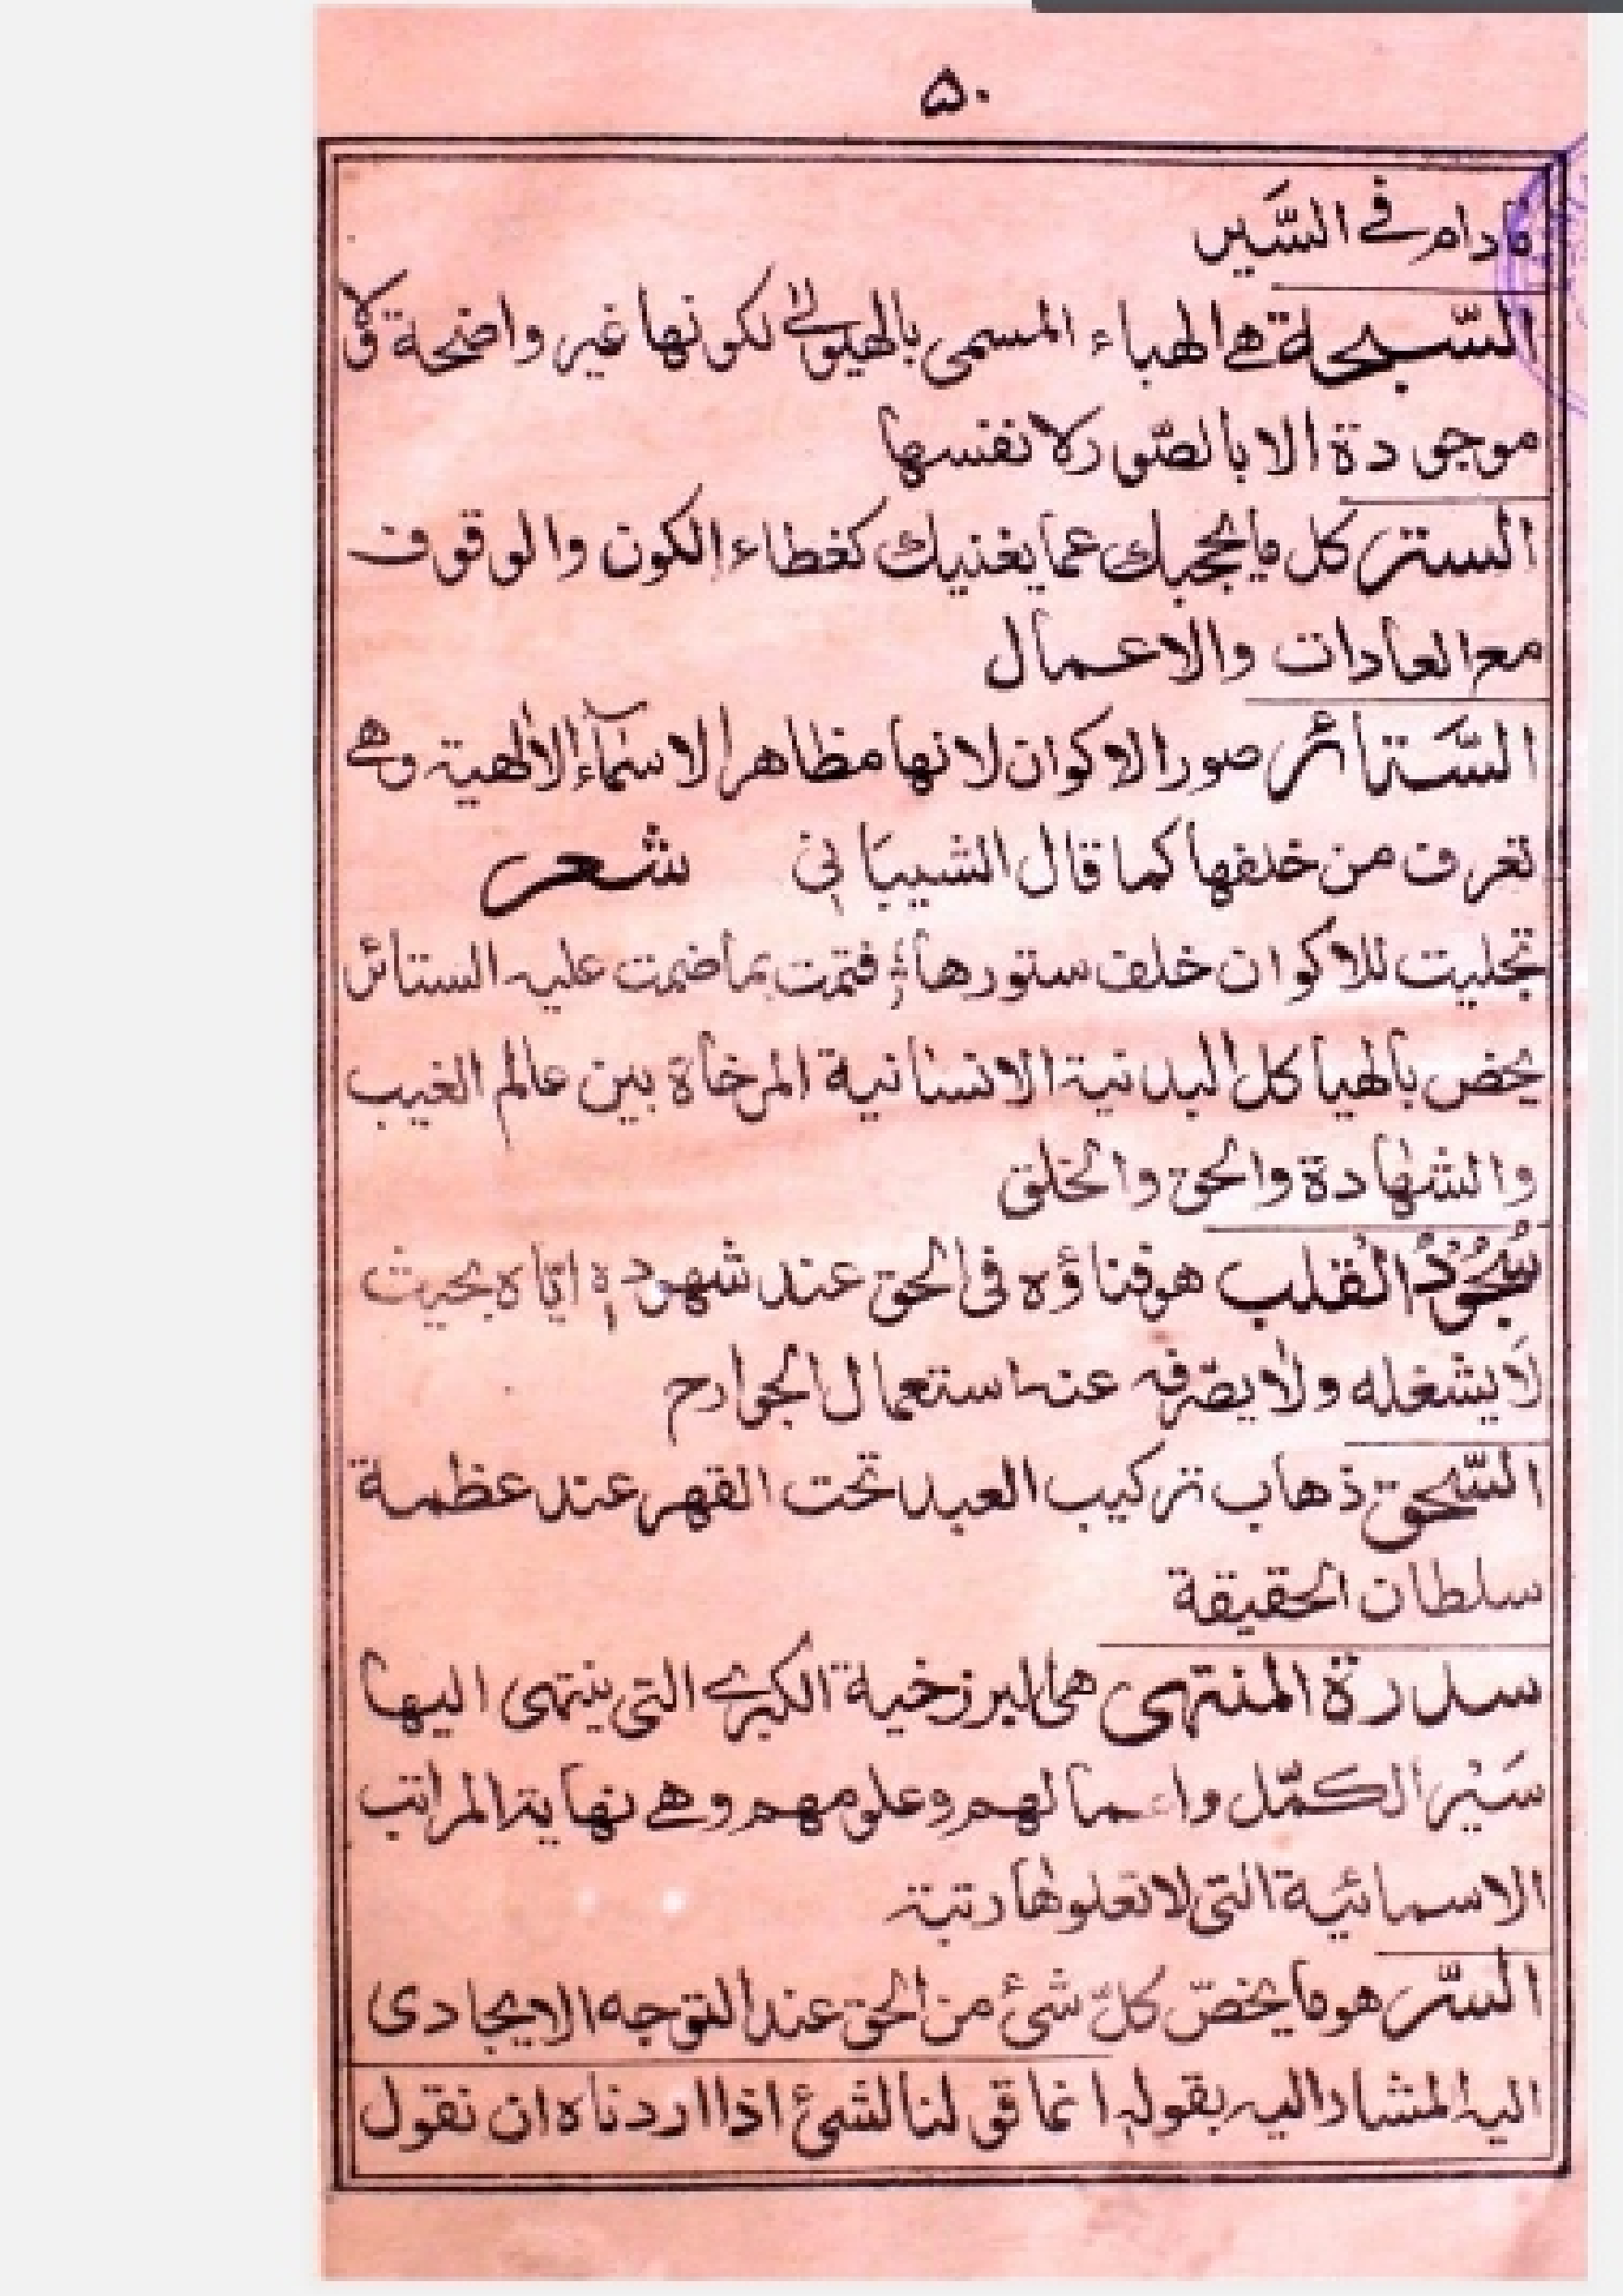 ۵۰
مادام فے السَّير
السّبحة هے الهباء المسمى بالهيولے لكونها غير واضحة ولا
موجودة الا بالصّور لا نفسها
الستر كل ما يحجبك عما يغنيك كغطاء الكون والوقوف
مع العادات والاعمال
السَّتائر صور الاكوان لانها مظاهر الاسمآء الالٰهية وهے
تعرف من خلفها كما قال الشيبانی شعر
تجليت للاكوان خلف ستورها فتمت بما ضمت عليه الستائر
يخص بالهياكل البدنية الانسانية المرخاة بين عالم الغيب
والشهادة والحق والخلق
سُجُوْدُ الْقلب هو فناؤه فی الحق عند شهوده اياه بحيث
لَا يشغله ولا يصّرفه عنه استعمال الجوارح
السّحق ذهاب تركيب العبد تحت القهر عند عظمة
سلطان الحقيقة
سدرة المنتهى هی البرزخية الكبرے التی ينتهی اليها
سَيْر الكمّل واعمالهم وعلومهم وهے نهاية المراتب
الاسمائية التی لا تعلوها رتبة
السّر هو ما يخصّ كلّ شئ من الحق عند التوجه الايجادی
اليه المشار اليه بقوله انما قولنا لشئ اذا اردناه ان نقول